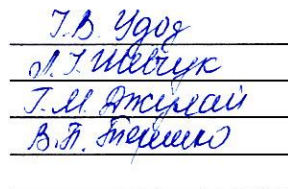 Т.В. Удод
Л.І. Шевчук
Г.М. Джулай
В.П. Терешко